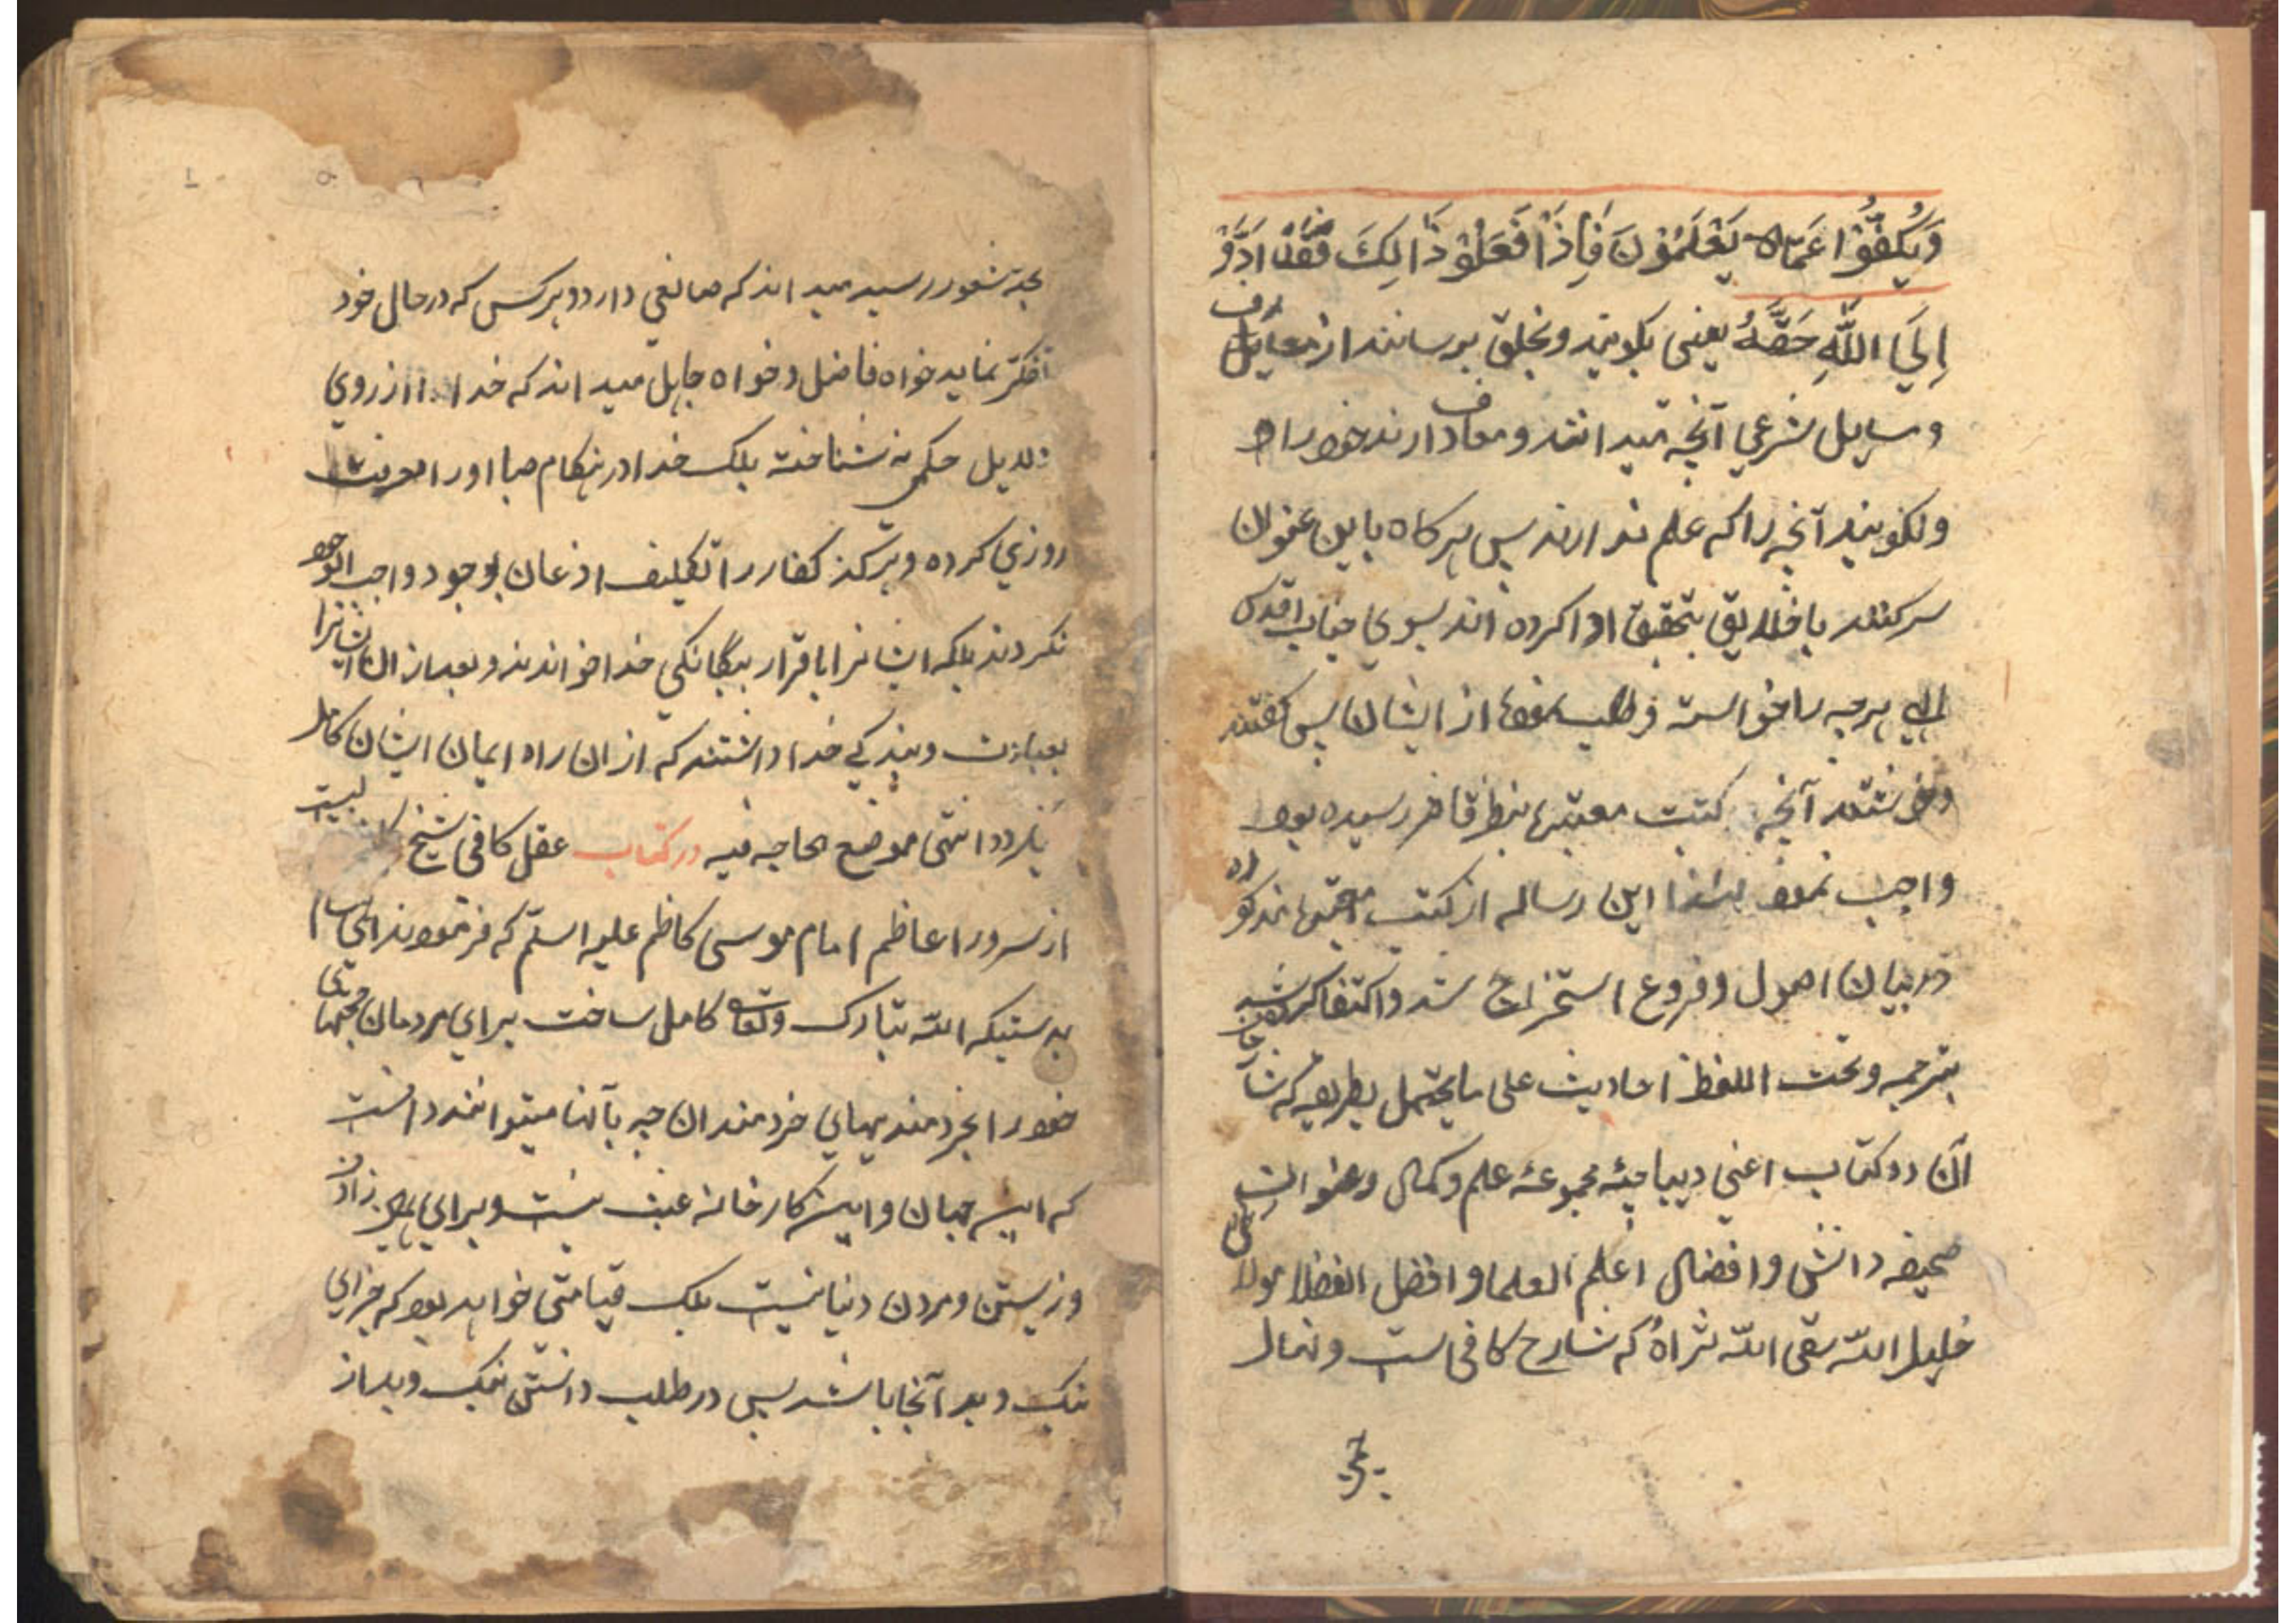 وَيَكُفُّوْا عَمَّا لا يَعْلَمُوْنَ فَاِذَا فَعَلُوْ ذَالِكَ فَقَدْ اَدَّوْ
اِلَيَ اللّٰهِ حَقَّهُ يعنى بكويند وبخلق برسانند از معارف
ومسايل شرعي آنچه ميدانند ومعاف دارند خود را
ونكويند آنچه را كه علم ندارند پس هركاه باين عنوان
سر كنند با خلايق بتحقيق ادا كرده اند بسوي جناب اقدس
الهي هرچه را خواسته و طلب از ايشان پس كفتند
ونوشتند آنچه كتب معتبره بنظر قاصر رسيده بود
واجب نمود لهذا اين رساله از كتب معتبره مذكوره
در بيان اصول وفروع استخراج شد واكتفا كرده شد
بترجمه وتحت اللفظ احاديث على ما يحتمل بطريقه كه
آن دو كتاب اعني ديباچه مجموعه علم وكمال وعنوان
صحيفه دانش وافضال اعلم العلما و افضل الفضلا مولانا
خليل الله سقى الله ثراهُ كه شارح كافى است ونهال
بحد شعور رسيد ميداند كه صانعي دارد و هر كس كه در حال خود
تفكر نمايد خواه فاضل و خواه جاهل ميداند كه خدا را از روي
دليل حكمى نه شناخته بلك خدا در هنكام صبا او را معرفت
روزي كرده وهركز كفار را تكليف اذعان بوجود واجب الوجود
نكردند بلكه ايشانرا باقرار بيگانكي خدا خواندند و بعد از ان ايشانرا
بعبادت و بندكي خدا داشتند كه از ان راه ايمان ايشان كامل
كردد انتهى موضع الحاجه فيه در كتاب عقل كافى شيخ
از سرور اعاظم امام موسى كاظم عليه السلم كه فرمودند اى هشام
بدرستيكه الله تبارك وتعالى كامل ساخت براي مردمان حجتهاى
خود را بخردمنديهاي خردمندان چه بآنها ميتوانند دانست
كه اين جهان و اين كارخانه عبث نيست و براي همين زادن
وزيستن ومردن دنيا نيست بلك قيامتى خواهد بود كه جزاي
نيك و بد آنجا باشد پس در طلب دانستن نيك و بد از